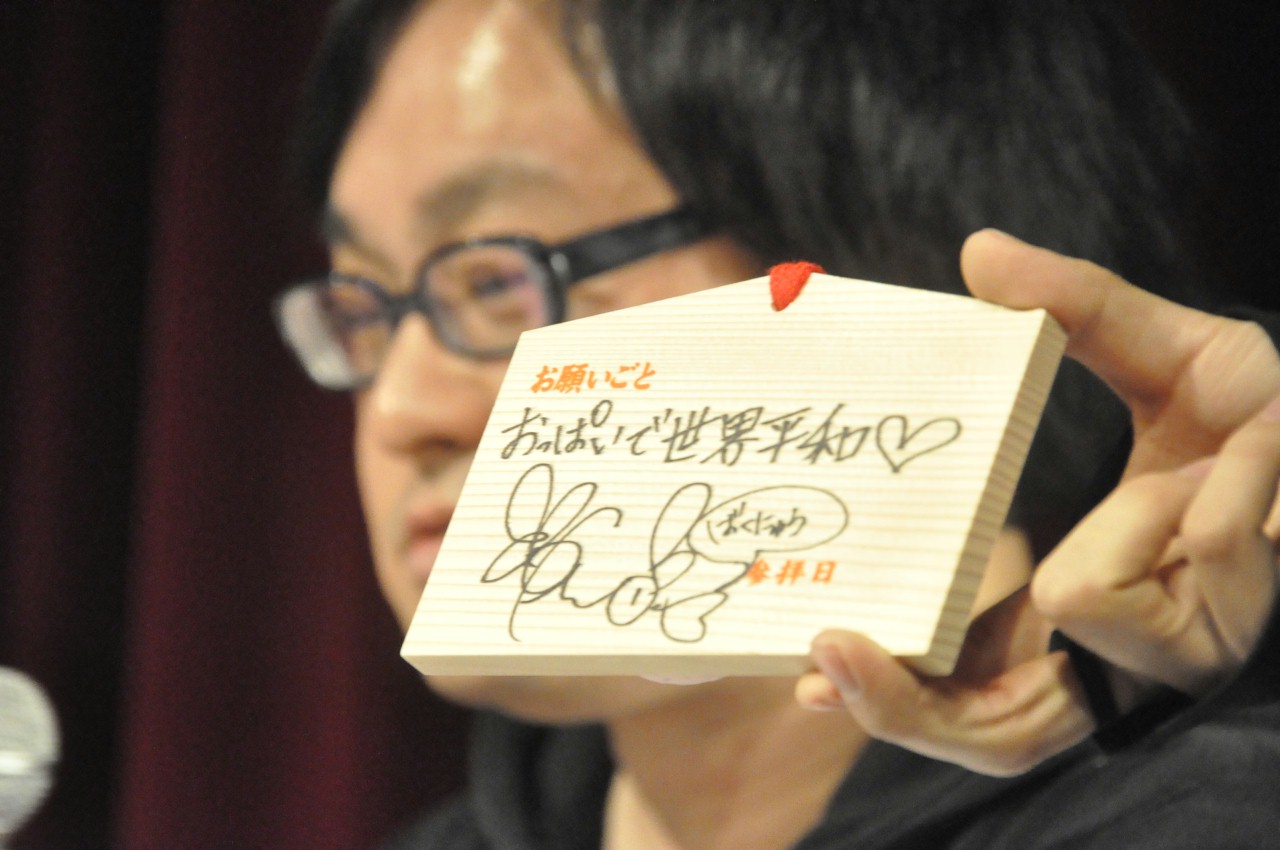 お願いごと
おっぱいで世界平和♡
ばくにゅう
参拝日